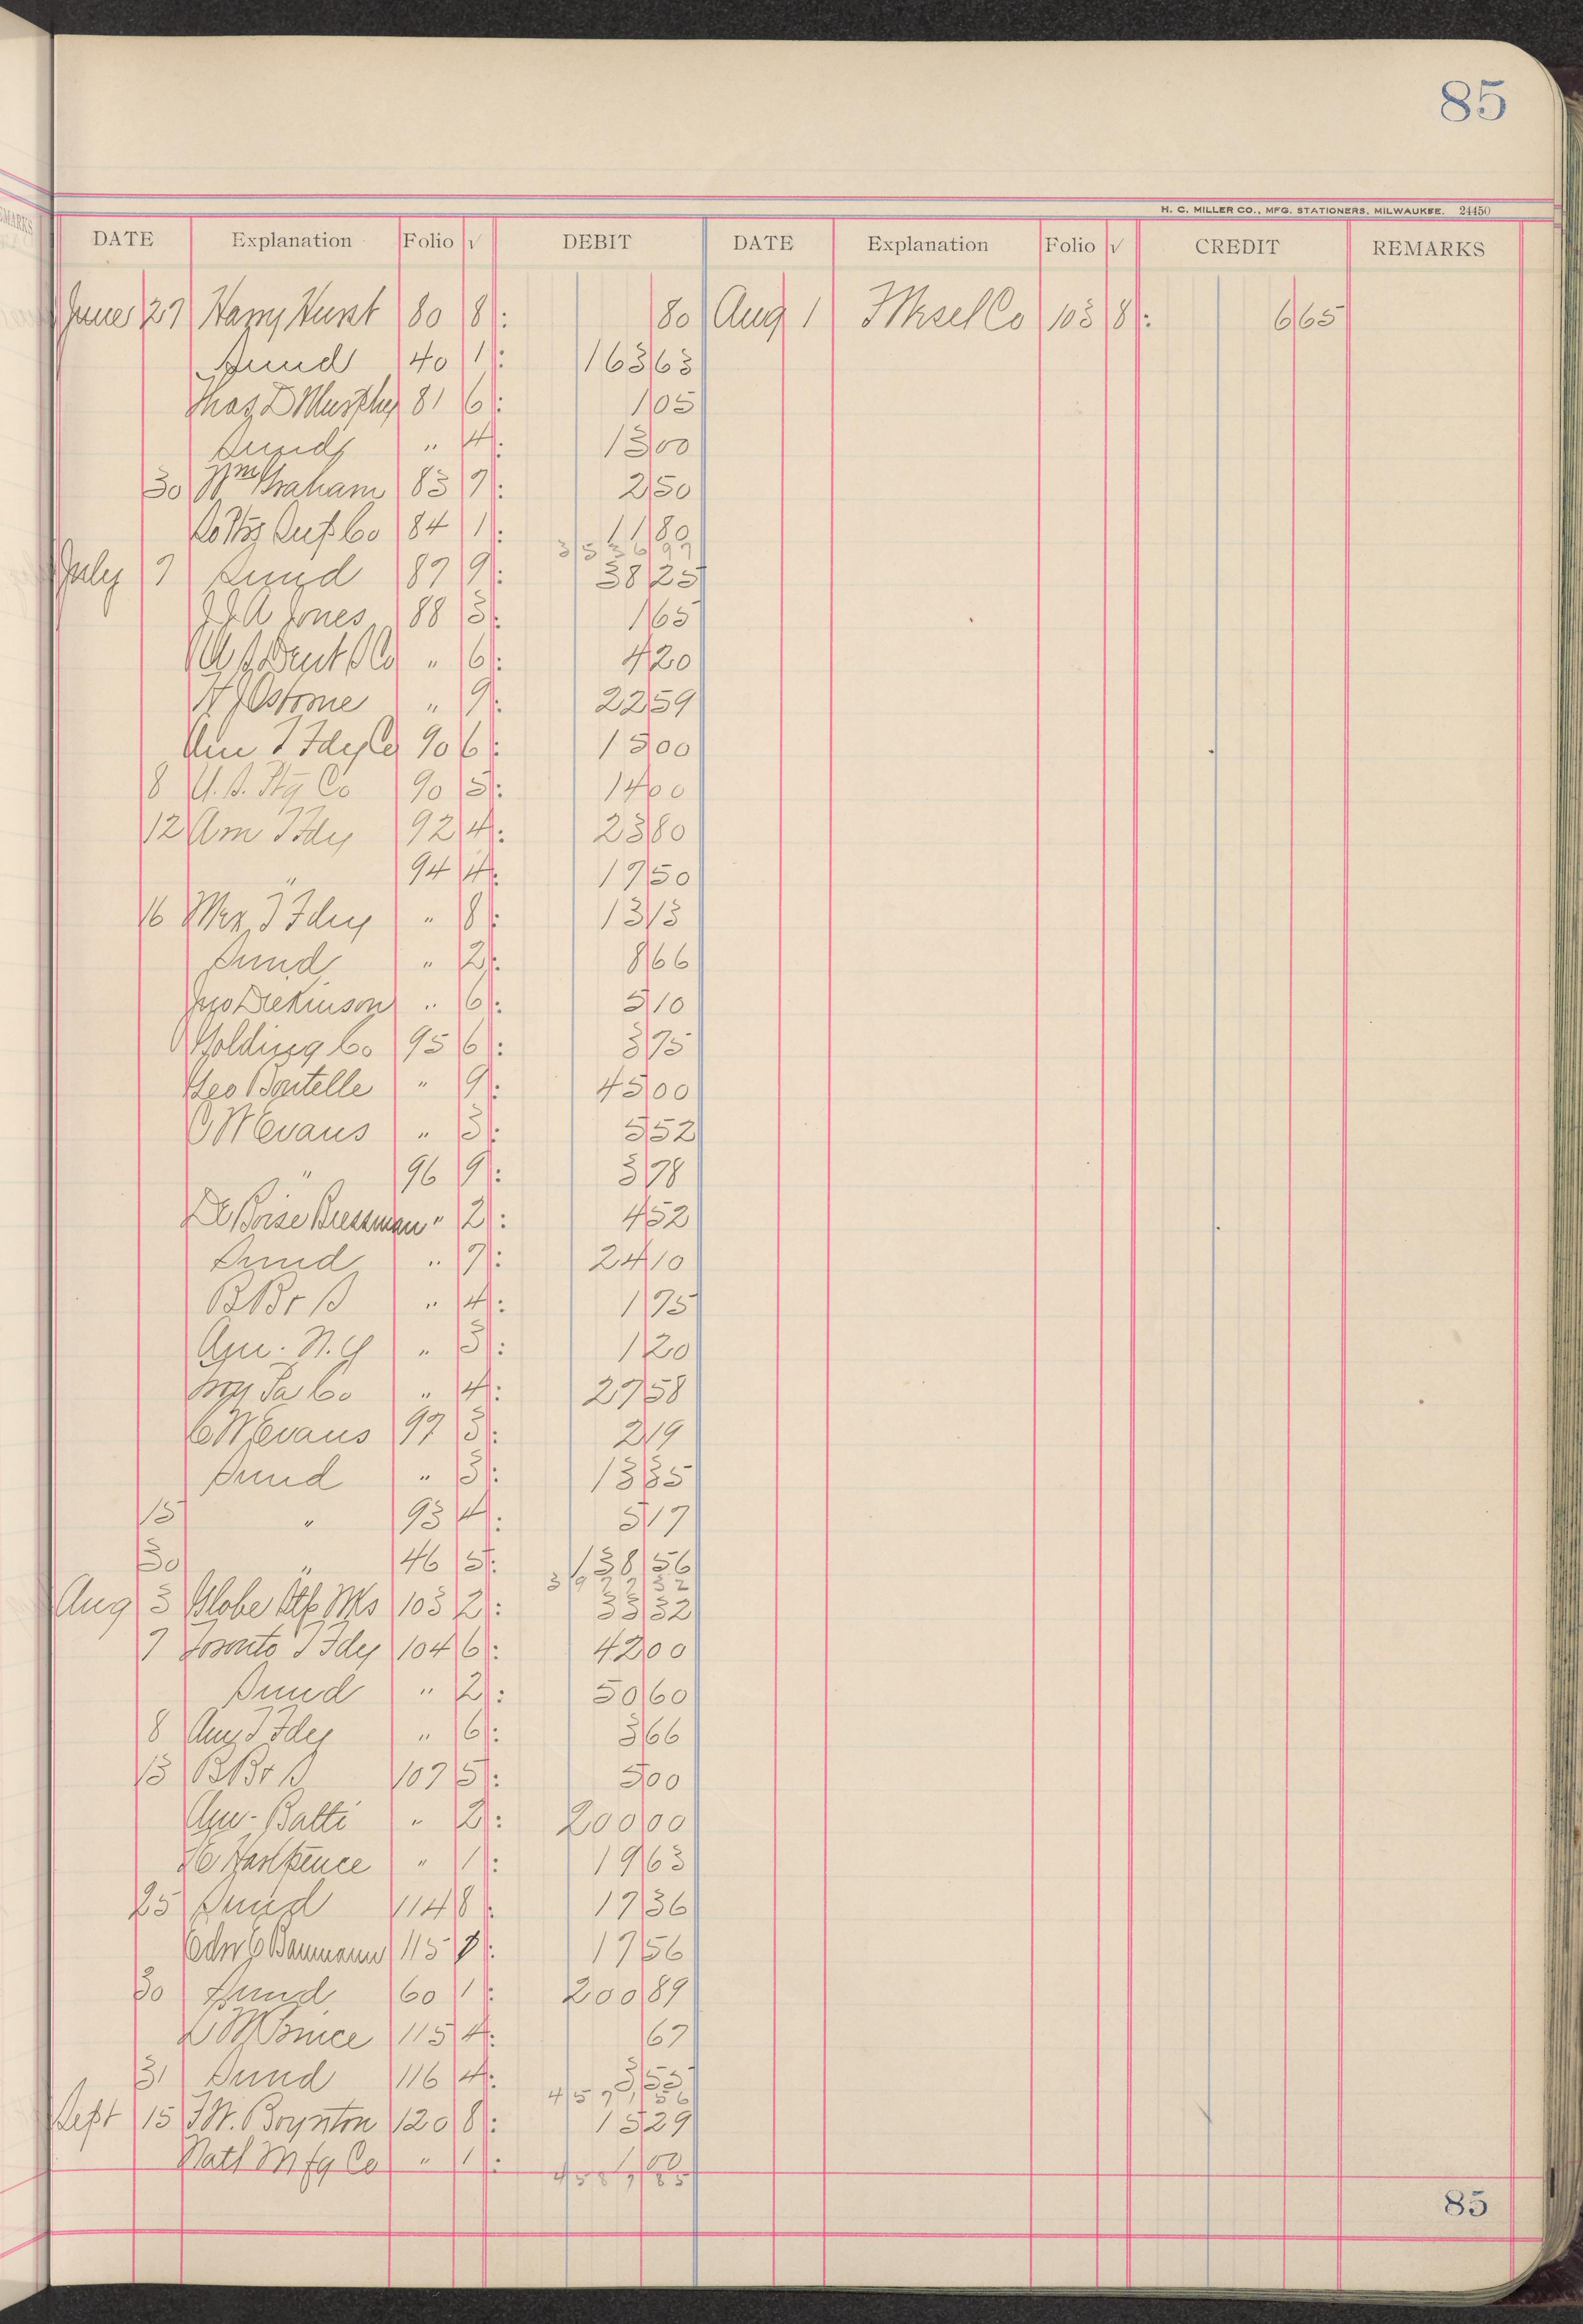 85
H. C. MILLER CO., MFG. STATIONERS, MILWAUKEE. 24450
DATE Explanation Folio √ DEBIT DATE Explanation Folio √ CREDIT REMARKS
June 27 Harry Hurst 80 8 80 Aug 1 Co 103 8 6 65
Sund 40 1 163 63
Thos D Murphy 81 6 1 05
Sunds " 4 13 00
30 Wm Graham 83 7 2 50
Co 84 1 11 80
3 5 3 6 97
July 7 Sund 87 9 38 25
J A Jones 88 3 1 65
Co " 6 4 20
" 9 22 59
Am T Fdy Co 90 6 15 00
8 U.S. Co 90 5 14 00
12 Am T Fdy 92 4 23 80
" 94 4 17 50
16 T Fdy " 8 13 13
Sund " 2 8 66
Jno Dickinson " 6 5 10
Golding Co 95 6 3 75
Geo Boutelle " 9 45 00
C W Evans " 3 5 52
" 96 9 3 78
" 2 4 52
Sund " 7 24 10
B Br S " 4 1 75
N.Y " 3 1 20
Co " 4 27 58
C W Evans 97 3 2 19
Sund " 3 13 35
15 " 93 4 5 17
30 " 46 5 138 56
3 9 7 7 32
Aug 3 Globe 103 2 33 32
7 Toronto T Fdy 104 6 42 00
Sund " 2 50 60
8 Am T Fdy " 6 3 66
13 B Br S 107 5 5 00
Balti " 2 200 00
" 1 19 63
25 Sund 114 8 17 36
Baumann 115 8 17 56
30 Sund 60 1 200 89
115 4 67
31 Sund 116 4 3 53
4 5 7 1 56
Sept 15 W. Boynton 120 8 15 29
Natl Mfg Co " 1 1 00
4 5 8 7 85
85